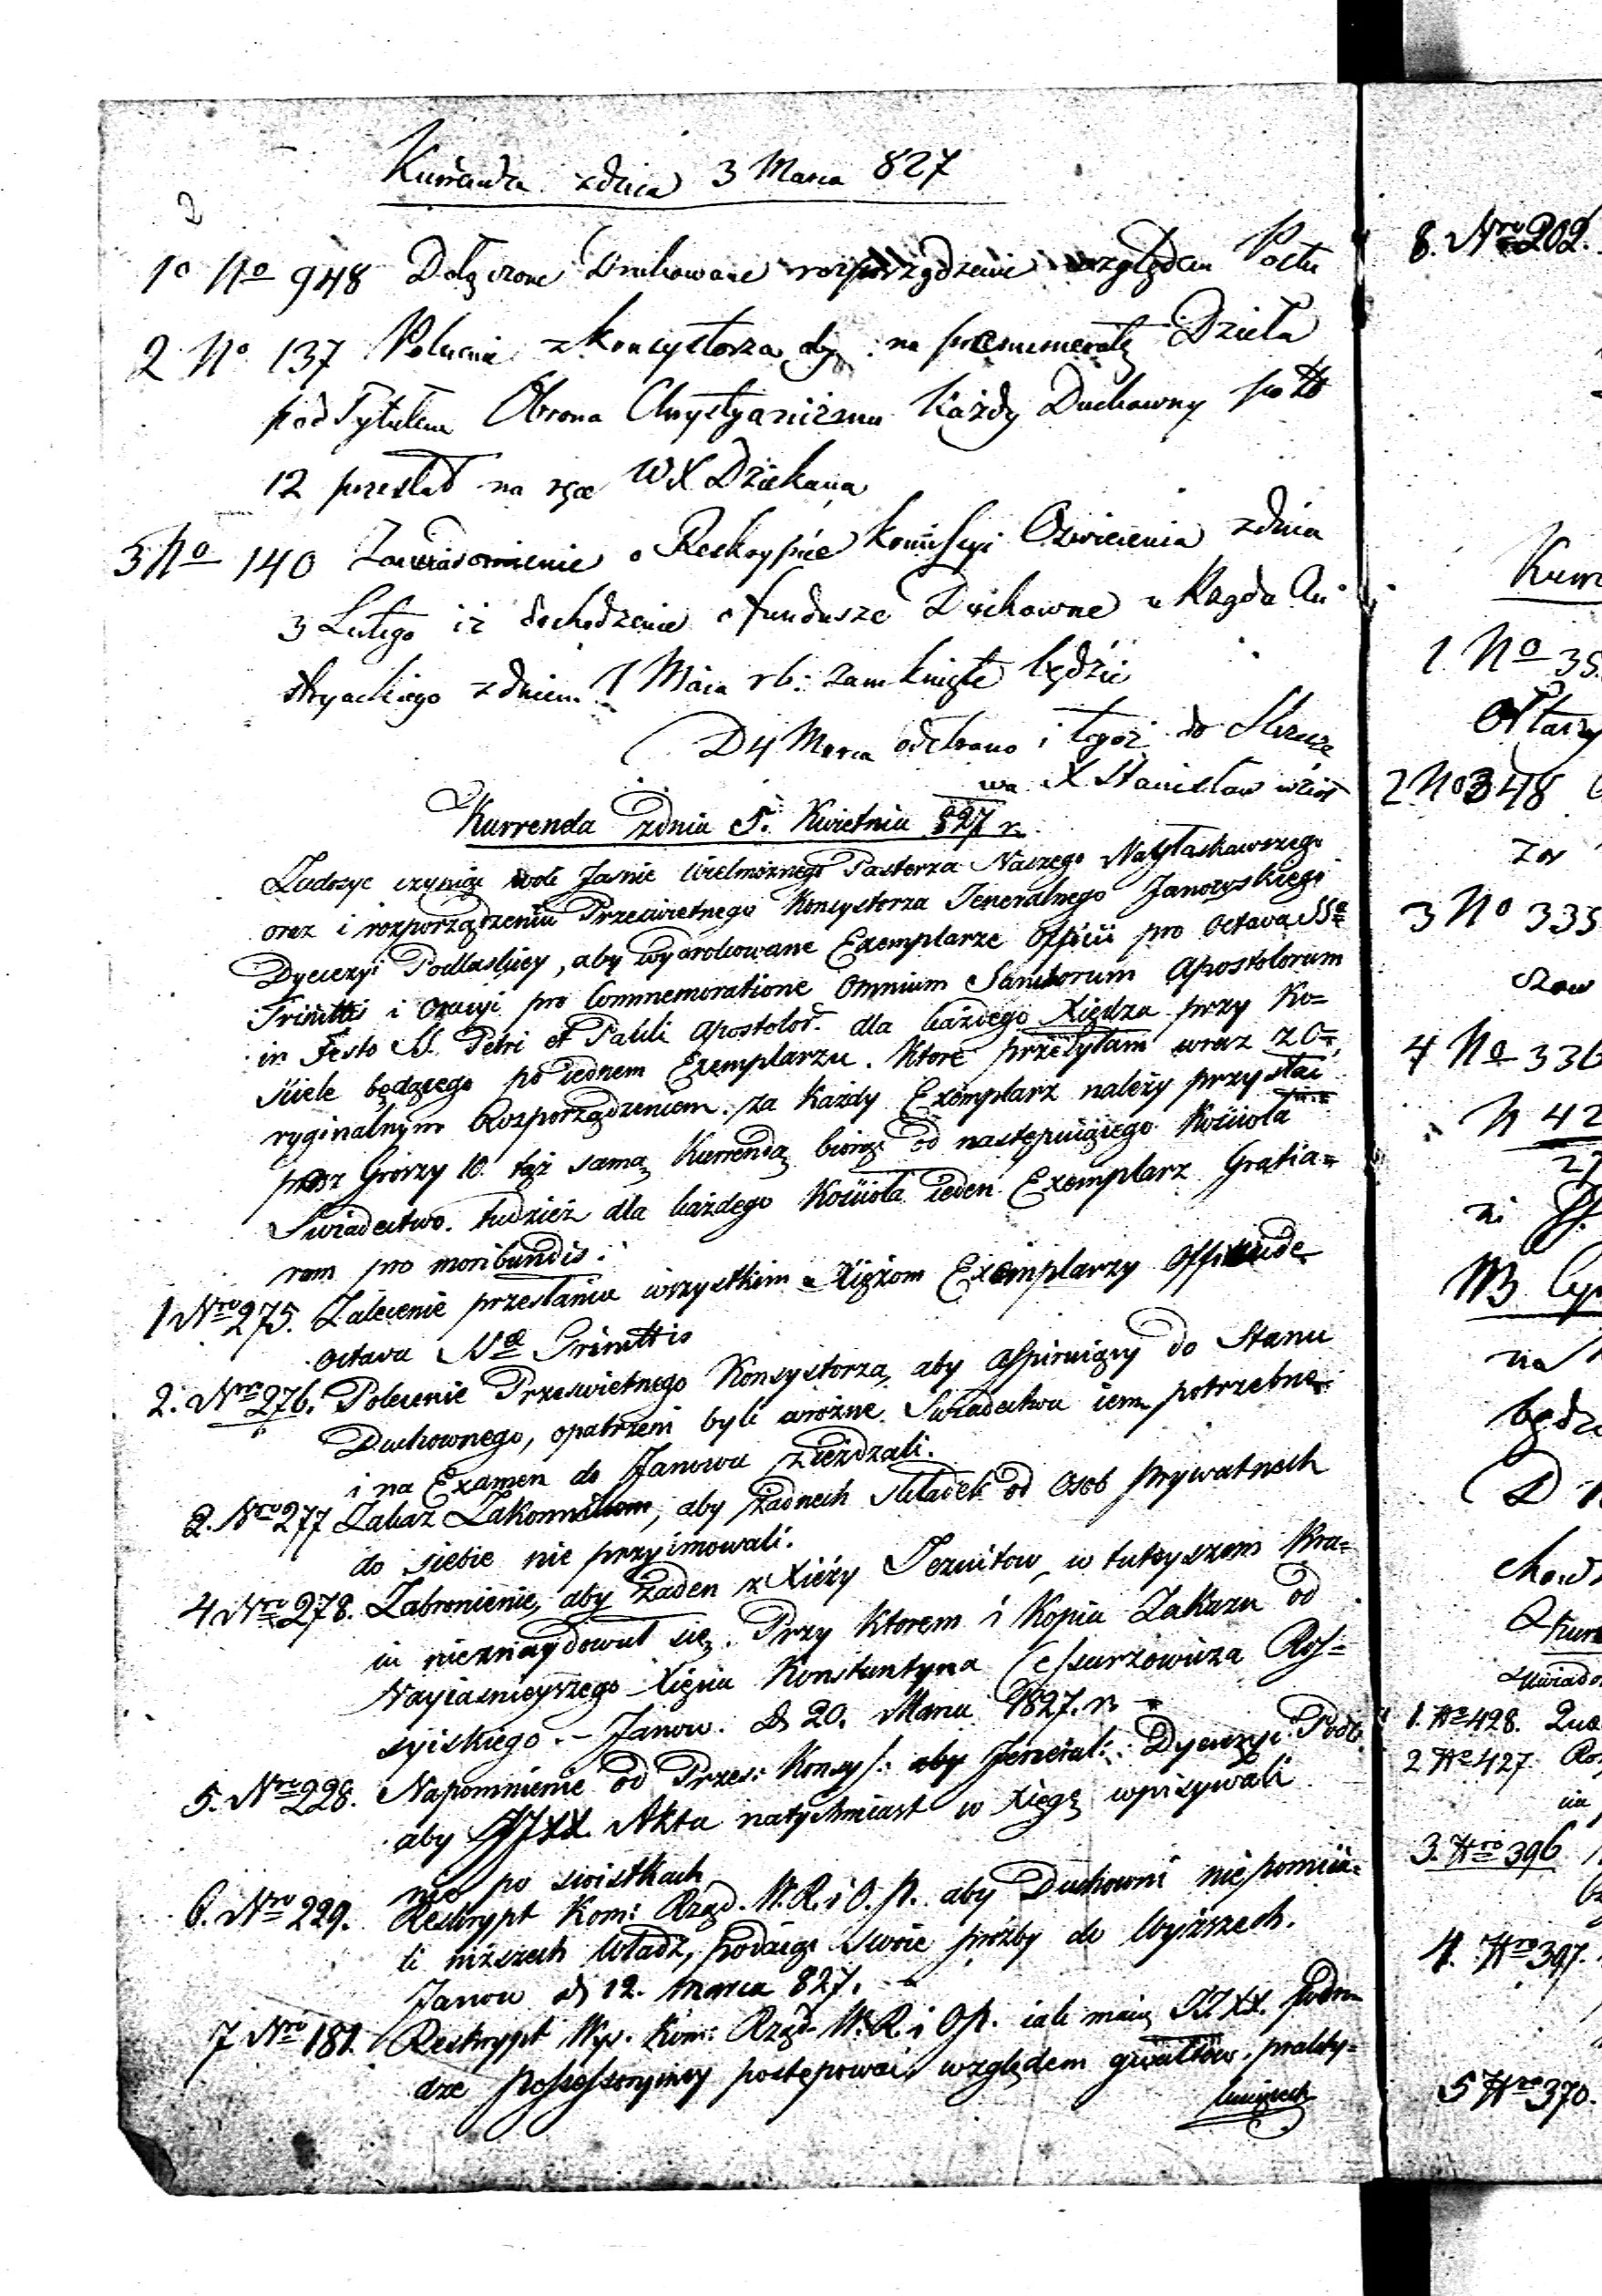 Kurrenda z dnia 3 Marca 827
1o No 948 Dołączone Drukowane rozporządzenie względem Poctu
2 No 137 Polecenie z Konsystorza aby na prenumeratę Dzieła
pod Tytułem Obrona Chrystyanizmu Każdy Duchowny po zł
12 przesłał na ręce WX Dziekana
3 No 140 Zawiadomienie o Reskrypcie Kommissyi Oświecenia z dnia
3 Lutego iż dochodzenie o fundusze Duchowne u Rządu Au
stryackiego z dniem 1 Maia rb: zamknięte będzie
D 4 Marca odebrano i tegoż do
wa X Stanisław wziął
Kurrenda z dnia 5. Kwietnia 827 r.
Zadosyc czyniąc woli Jasnie Wielmożnego Pasterza Naszego Nayłaskawszego
oraz i rozporządzeniu Przeswietnego Konsystorza Jeneralnego Janowskiego
Dyecezyi Podlaskiey, aby wydrukowane Exemplarze Officii pro Octava SSæ
Trinittis i Oracyi pro Commemoratione Omnium Sanctorum Apostolorum
in Festo SS. Petri et Pauli Apostolor. dla każdego Xiędza przy Ko=
sciele będącego po iednem Exemplarzu. Ktore przesyłam wraz z O=
ryginalnym Rozporządzeniem. za Każdy Exemplarz należy przysłać
przez Groszy 10. tąż samą Kurrendą biorąc od następuiącego Kościoła
Swiadectwo. tudzież dla każdego Kościoła ieden Exemplarz Gratia=
rum pro moribundis.
1 Nro 275. Zalecenie przesłania wszystkim Xiężom Exemplarzy Officii de
Octava SSæ Trinittis
2. Nro 276. Polecenie Przeswietnego Konsystorza, aby Aspiruiący do Stanu
Duchownego, opatrzeni byli w różne Swiadectwa iem potrzebne
i na Examen do Janowa zieżdzali.
3. Nro 277 Zakaz Zakonnikom, aby żadnech składek od Osob prywatnech
do siebie nie przyimowali.
4 Nro 278. Zabronienie, aby żaden z Xięży Jezuitow w tuteyszem Kra=
iu nieznaydował się. Przy ktorem i Kopia Zakazu od
Nayiasnieyszego Xięcia Konstantyna Cessarzowicza Ros=
syiskiego. - Janow. d 20. Marca 1827. r.
5. Nro 228. Napomnienie od Przes: Konsys: aby Jeneral: Dyecezyi Podl:
aby JJXX. Akta natychmiast w Xięgę wpisywali
nie po swistkach
6. Nro 229. Reskrypt Kom: Rząd. W. R. i O. P. aby Duchowni niepomiia=
li niższech Władz, podaiąc swoie prożby do Wyższech.
Janow d 12. Marca 827.
7 Nro 181. Reskrypt Wys. Kom: Rząd. W. R. i O P. iak maią JJXX. podro=
dze possessoryiney postępować względem gwałtow prakty=
kuiącech
8. Nro 202.
1. No 35
Ołtarzy
2 No 348
3 No 335
4 No 336
N 42
będz
1. No 428.
2 No 427.
3. Nro 396
4. Nro 397.
5 Nro 370.